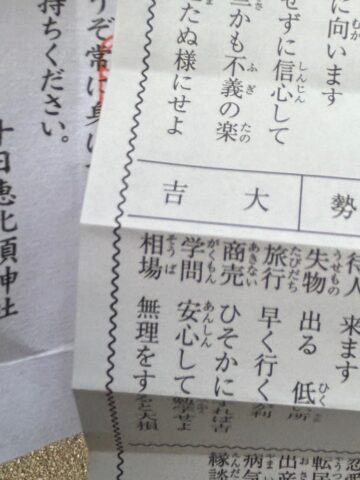 に向います
せずに信心して
かも不義の楽
たぬ様にせよ
勢
大吉
待人 来ます
失物 出る 低い所
旅行 早く行く
商売 ひそかにすれば吉
学問 安心して勉学せよ
相場 無理をすると大損
転居
出産
病気
縁談
うぞ常に身に
持ちください。
十日恵比須神社